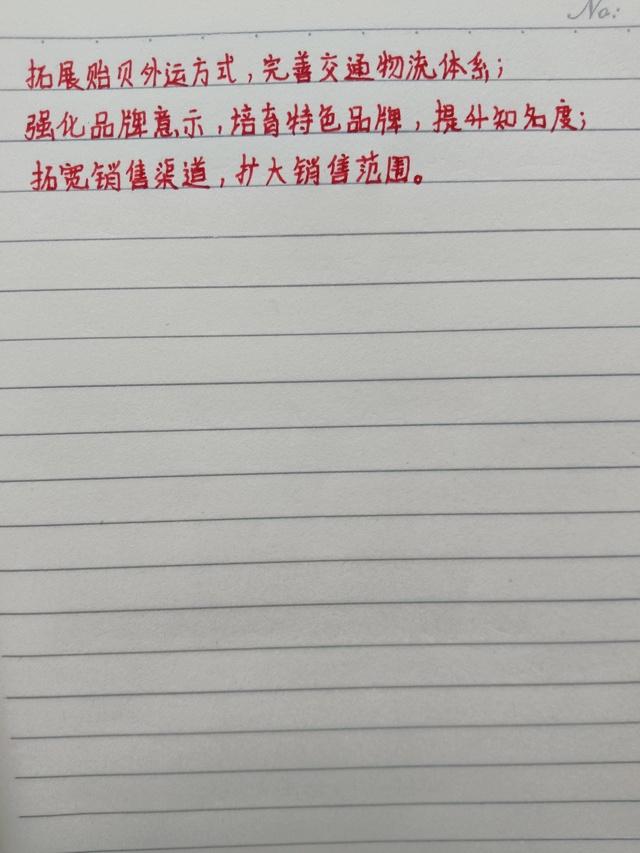 No:
拓展贻贝外运方式，完善交通物流体系；
强化品牌意示，培育特色品牌，提升知名度；
拓宽销售渠道，扩大销售范围。